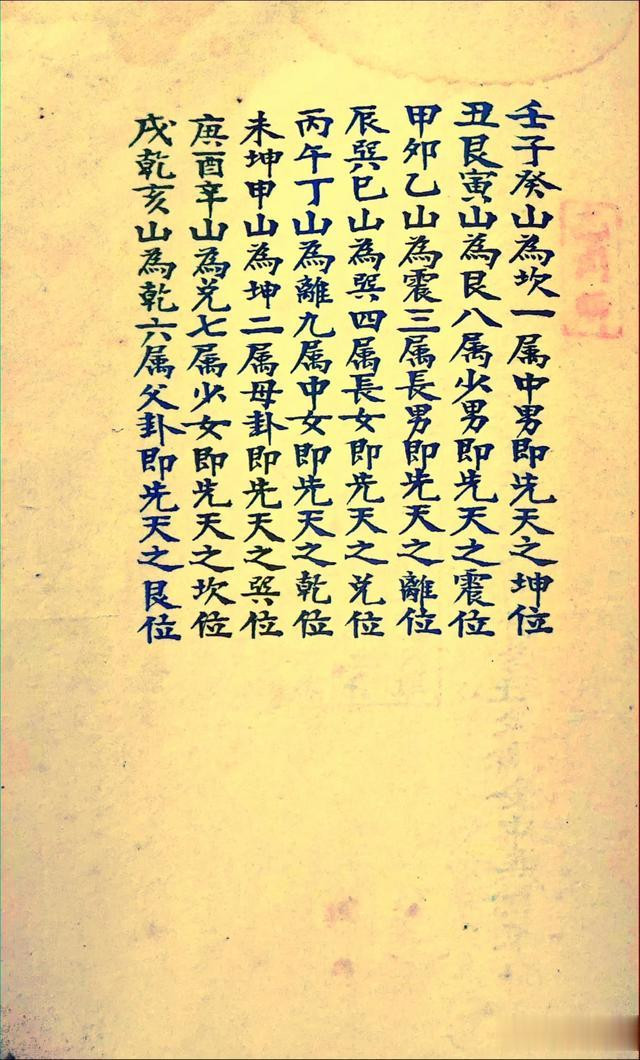 壬子癸山為坎一属中男即先天之坤位
丑艮寅山為艮八属少男即先天之震位
甲卯乙山為震三属長男即先天之離位
辰巽巳山為巽四属長女即先天之兑位
丙午丁山為離九属中女即先天之乾位
未坤申山為坤二属母卦即先天之巽位
庚酉辛山為兑七属少女即先天之坎位
戌乾亥山為乾六属父卦即先天之艮位